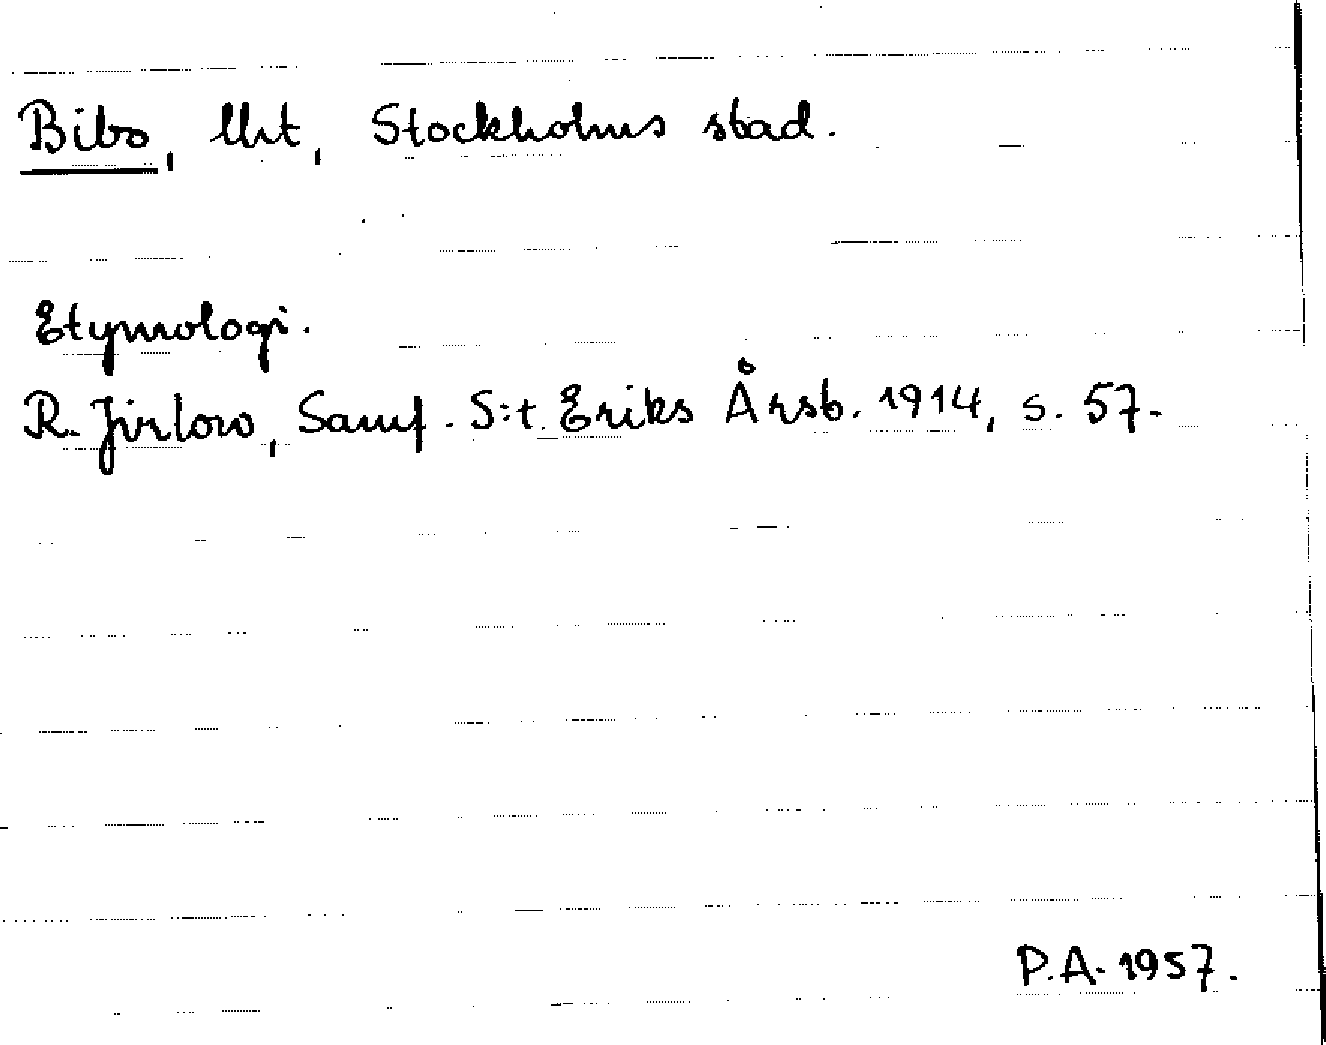 Bibo, lht, Stockholms stad.
Etymologi.
R. Jirlow, Samf. S:t Eriks Årsb. 1914, s. 57.
P.A. 1957.